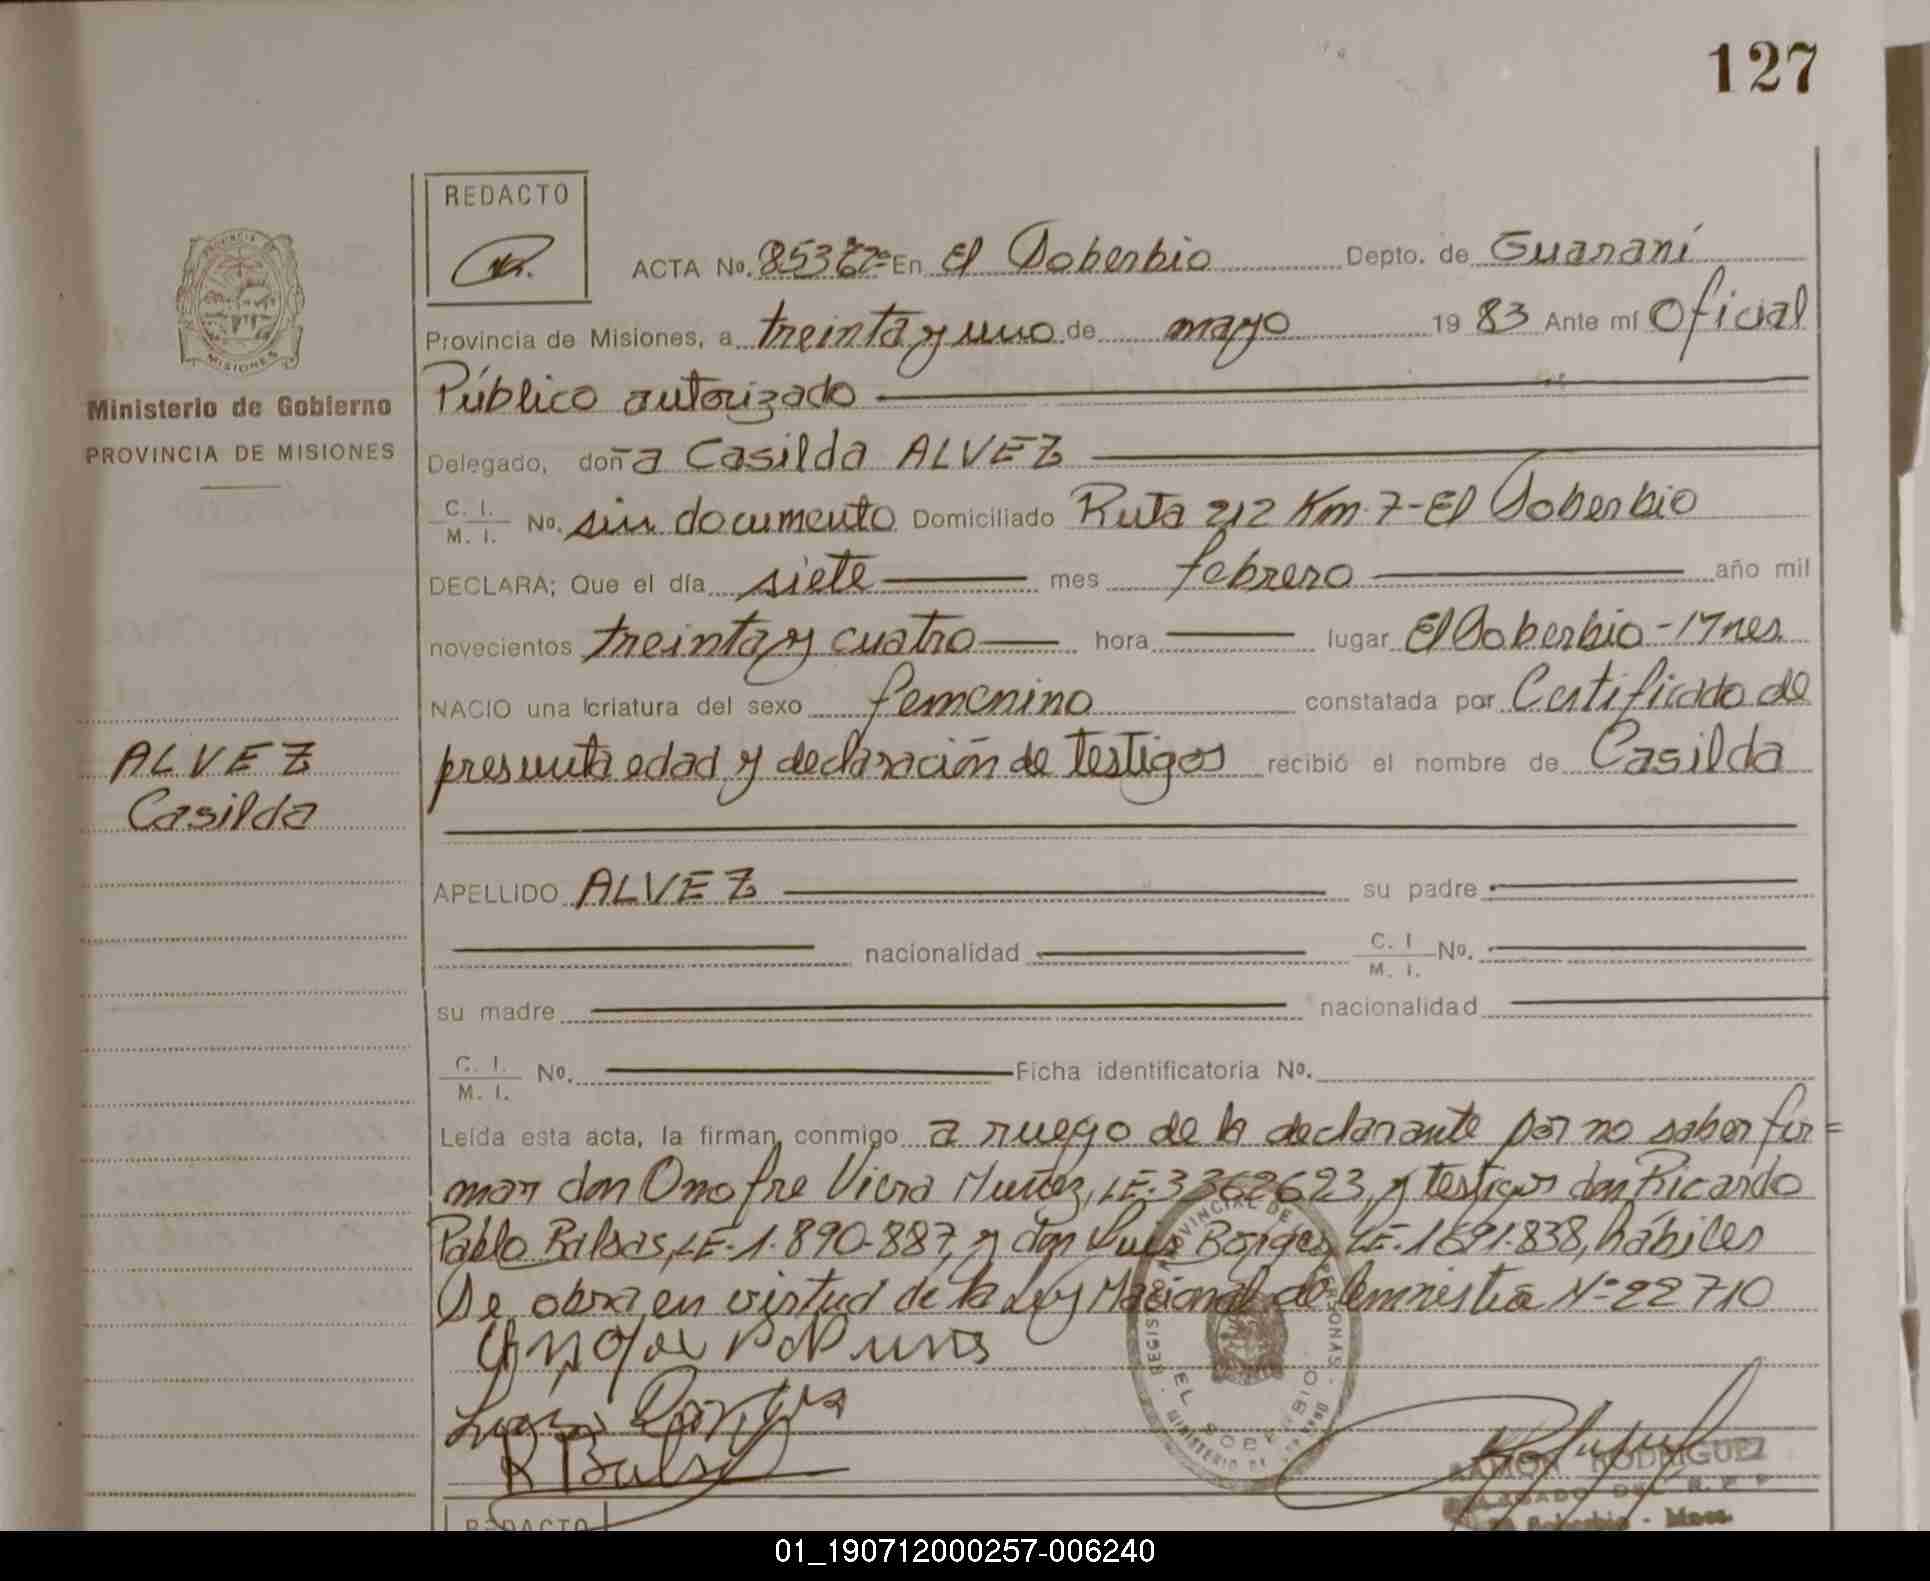 127
REDACTO
ACTA No. En El Soberbio Depto. de Guaraní
Provincia de Misiones, a treinta y uno de mayo 19 83 Ante mí Oficial
Público autorizado
Delegado, doña Casilda ALVEZ
C. I.
M. I. No. sin documento Domiciliado Ruta 212 Km. 7-El Soberbio
DECLARA; Que el día siete mes febrero año mil
novecientos treinta y cuatro hora lugar El Soberbio - Mnes.
NACIO una criatura del sexo femenino constatada por Certificado de
presunta edad y declaración de testigos recibió el nombre de Casilda
APELLIDO ALVEZ su padre
nacionalidad C. I.
M. I. No.
su madre nacionalidad
C. I.
M. I. No. Ficha identificatoria No.
Leída esta acta, la firman conmigo a ruego de la declarante por no saber fir=
mar don Onofre Viera Muñez, LE. 3362623, y testigos don Ricardo
Pablo Balsas, LE-1.890-887, y don Luis Borges, LE-1691.838, hábiles
Se obra en virtud de la Ley Nacional de Amnistia N° 22710
R Balsa
REGISTRO PROVINCIAL DE LAS PERSONAS
EL SOBERBIO
MINISTERIO DE GOBIERNO
RAMON RODRIGUEZ
DELEGADO DEL R. P. P.
El Soberbio - Mnes.
REDACTO
PROVINCIA DE
MISIONES
Ministerio de Gobierno
PROVINCIA DE MISIONES
ALVEZ
Casilda
01_190712000257-006240